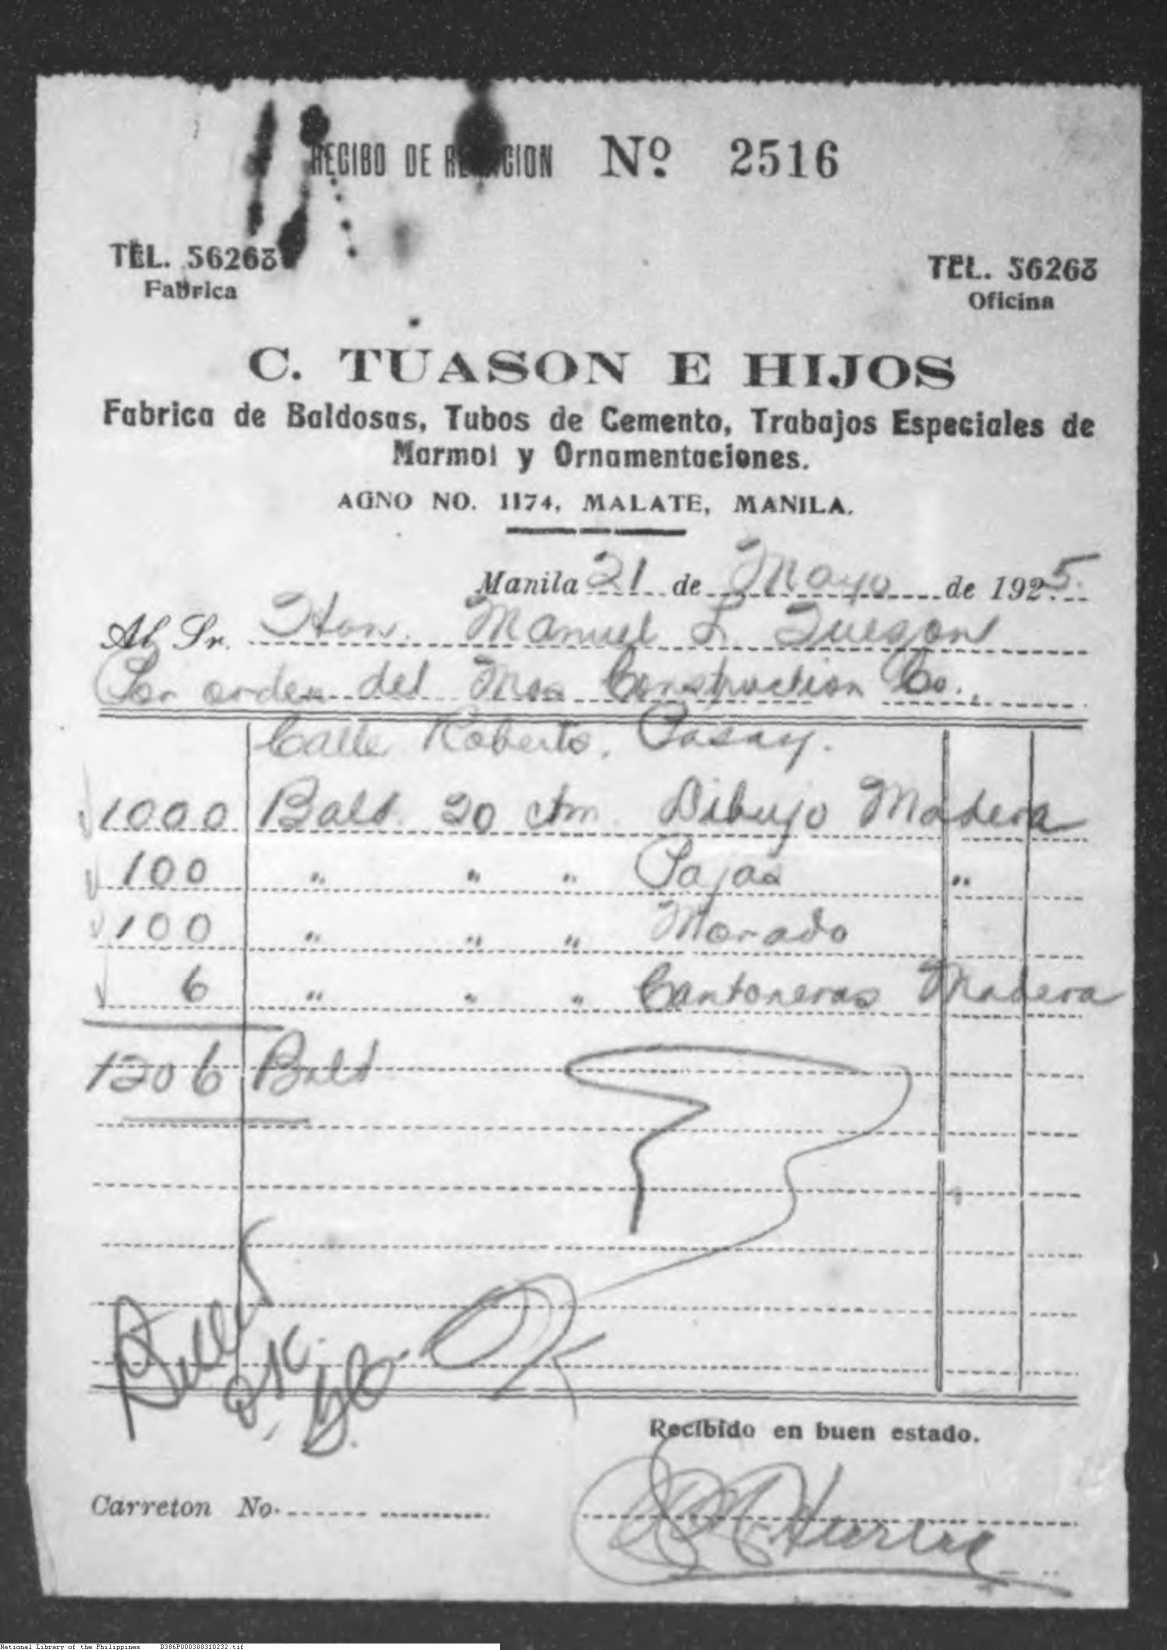 RECIBO DE RELACION Nº 2516
TEL. 56263
Fabrica
TEL. 56263
Oficina
C. TUASON E HIJOS
Fabrica de Baldosas, Tubos de Cemento, Trabajos Especiales de
Marmol y Ornamentaciones.
AGNO NO. 1174, MALATE, MANILA.
Manila 21 de Mayo de 1925.
Al Sr. Hon. Manuel L. Quezon
Por orden del Mos Construction Co.,
Calle Roberts, Pasay.
1000 Bald. 20 ctm. Dibujo Madera
100 " " " Pajas "
100 " " " Morado
6 " " " Cantoneras Madera
1206 Bald
O.K.
Recibido en buen estado.
Carreton No.
National Library of the Philippines D386P000300310232.tif